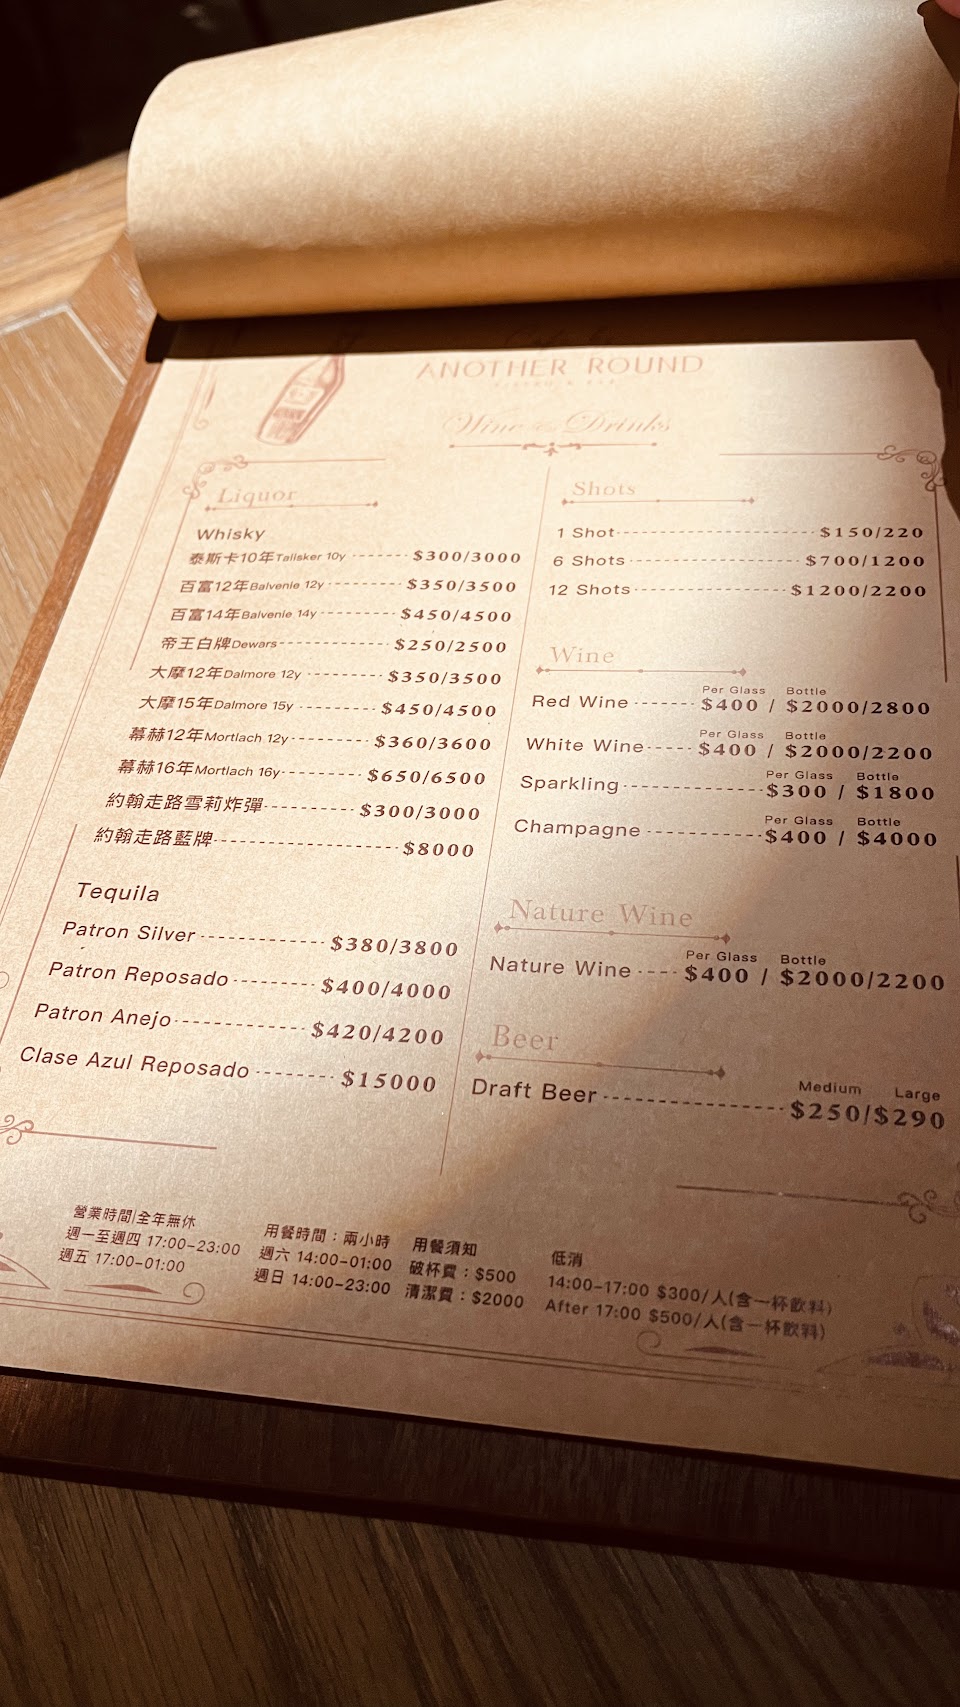 ANOTHER ROUND
Wine & Drinks
Liquor
Whisky
泰斯卡10年Talisker 10y $300/3000
百富12年Balvenie 12y $350/3500
百富14年Balvenie 14y $450/4500
帝王白牌Dewars $250/2500
大摩12年Dalmore 12y $350/3500
大摩15年Dalmore 15y $450/4500
幕赫12年Mortlach 12y $360/3600
幕赫16年Mortlach 16y $650/6500
約翰走路雪莉炸彈 $300/3000
約翰走路藍牌 $8000
Tequila
Patron Silver $380/3800
Patron Reposado $400/4000
Patron Anejo $420/4200
Clase Azul Reposado $15000
Shots
1 Shot $150/220
6 Shots $700/1200
12 Shots $1200/2200
Wine
Per Glass Bottle
Red Wine $400 / $2000/2800
Per Glass Bottle
White Wine $400 / $2000/2200
Per Glass Bottle
Sparkling $300 / $1800
Per Glass Bottle
Champagne $400 / $4000
Nature Wine
Per Glass Bottle
Nature Wine $400 / $2000/2200
Beer
Medium Large
Draft Beer $250/$290
營業時間|全年無休
週一至週四 17:00-23:00
週五 17:00-01:00
用餐時間：兩小時
週六 14:00-01:00
週日 14:00-23:00
用餐須知
破杯費：$500
清潔費：$2000
低消
14:00-17:00 $300/人(含一杯飲料)
After 17:00 $500/人(含一杯飲料)